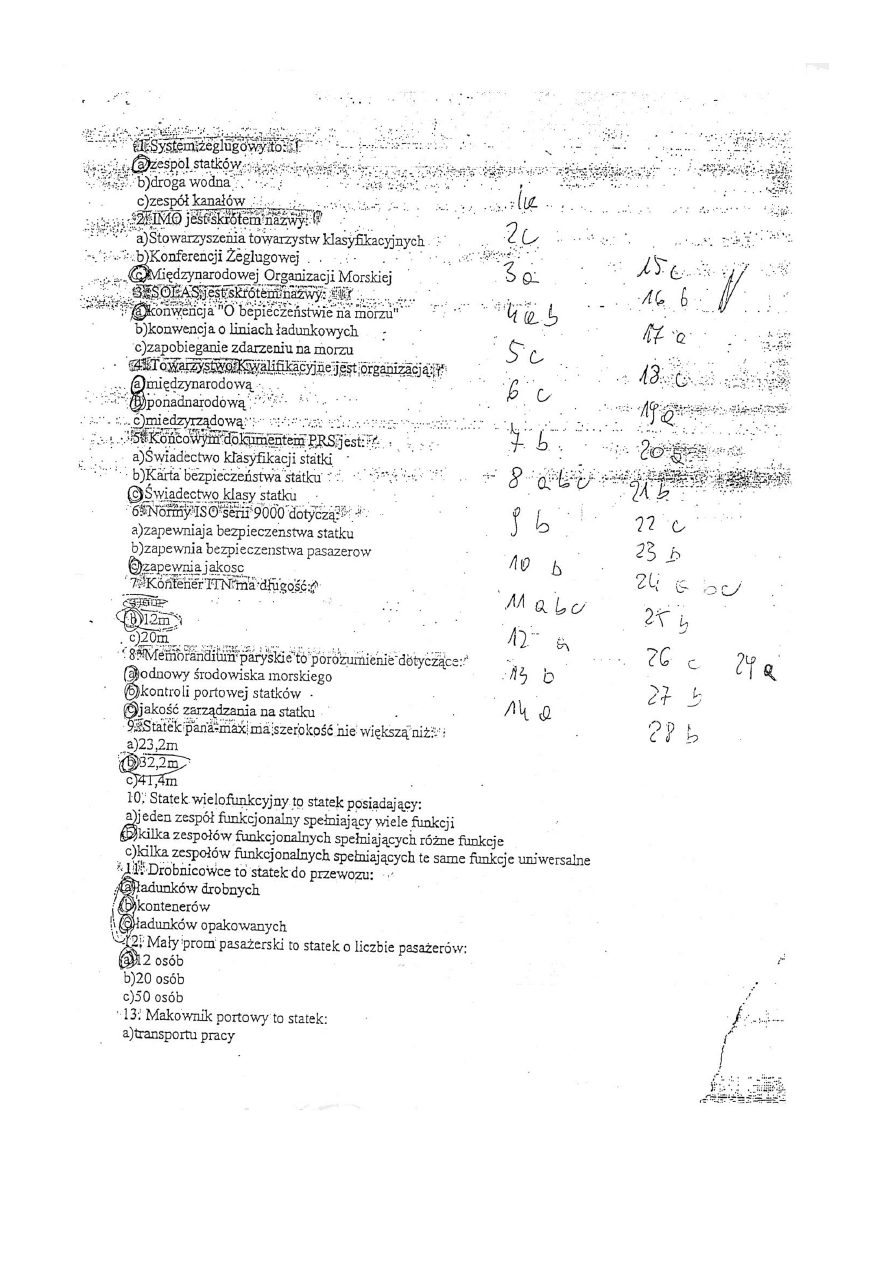 1. System żeglugowy to:
a)zespol statków
b)droga wodna
c)zespół kanałów
2. IMO jest skrótem nazwy:
a)Stowarzyszenia towarzystw klasyfikacyjnych
b)Konferencji Żeglugowej
c)Międzynarodowej Organizacji Morskiej
3. SOLAS jest skrótem nazwy:
a)konwencja "O bepieczeństwie na morzu"
b)konwencja o liniach ładunkowych
c)zapobieganie zdarzeniu na morzu
4. Towarzystwo Kwalifikacyjne jest organizacją:
a)międzynarodową
b)ponadnarodową
c)miedzyrządową
5. Końcowym dokumentem PRS jest:
a)Świadectwo klasyfikacji statki
b)Karta bezpieczeństwa statku
c)Świadectwo klasy statku
6. Normy ISO serii 9000 dotyczą:
a)zapewniaja bezpieczenstwa statku
b)zapewnia bezpieczenstwa pasazerow
c)zapewnia jakosc
7. Kontener TTN ma długość:
b)12m
c)20m
8. Memorandium paryskie to porozumienie dotyczące:
a)odnowy środowiska morskiego
b)kontroli portowej statków
c)jakość zarządzania na statku
9. Statek pana-max ma szerokość nie większą niż:
a)23,2m
b)32,2m
c)41,4m
10. Statek wielofunkcyjny to statek posiadający:
a)jeden zespół funkcjonalny spełniający wiele funkcji
b)kilka zespołów funkcjonalnych spełniających różne funkcje
c)kilka zespołów funkcjonalnych spełniających te same funkcje uniwersalne
11. Drobnicowce to statek do przewozu:
a)ładunków drobnych
b)kontenerów
c)ładunków opakowanych
12. Mały prom pasażerski to statek o liczbie pasażerów:
a)12 osób
b)20 osób
c)50 osób
13. Makownik portowy to statek:
a)transportu pracy
1a
2c
3a
4a b
5c
6 c
7 b
8 abc
9 b
10 b
11 abc
12 a
13 b
14 a
15 c
16 b
17 a
18 c
19 a
20 a
21 b
22 c
23 b
24 a bc
25 b
26 c
27 b
28 b
29 a